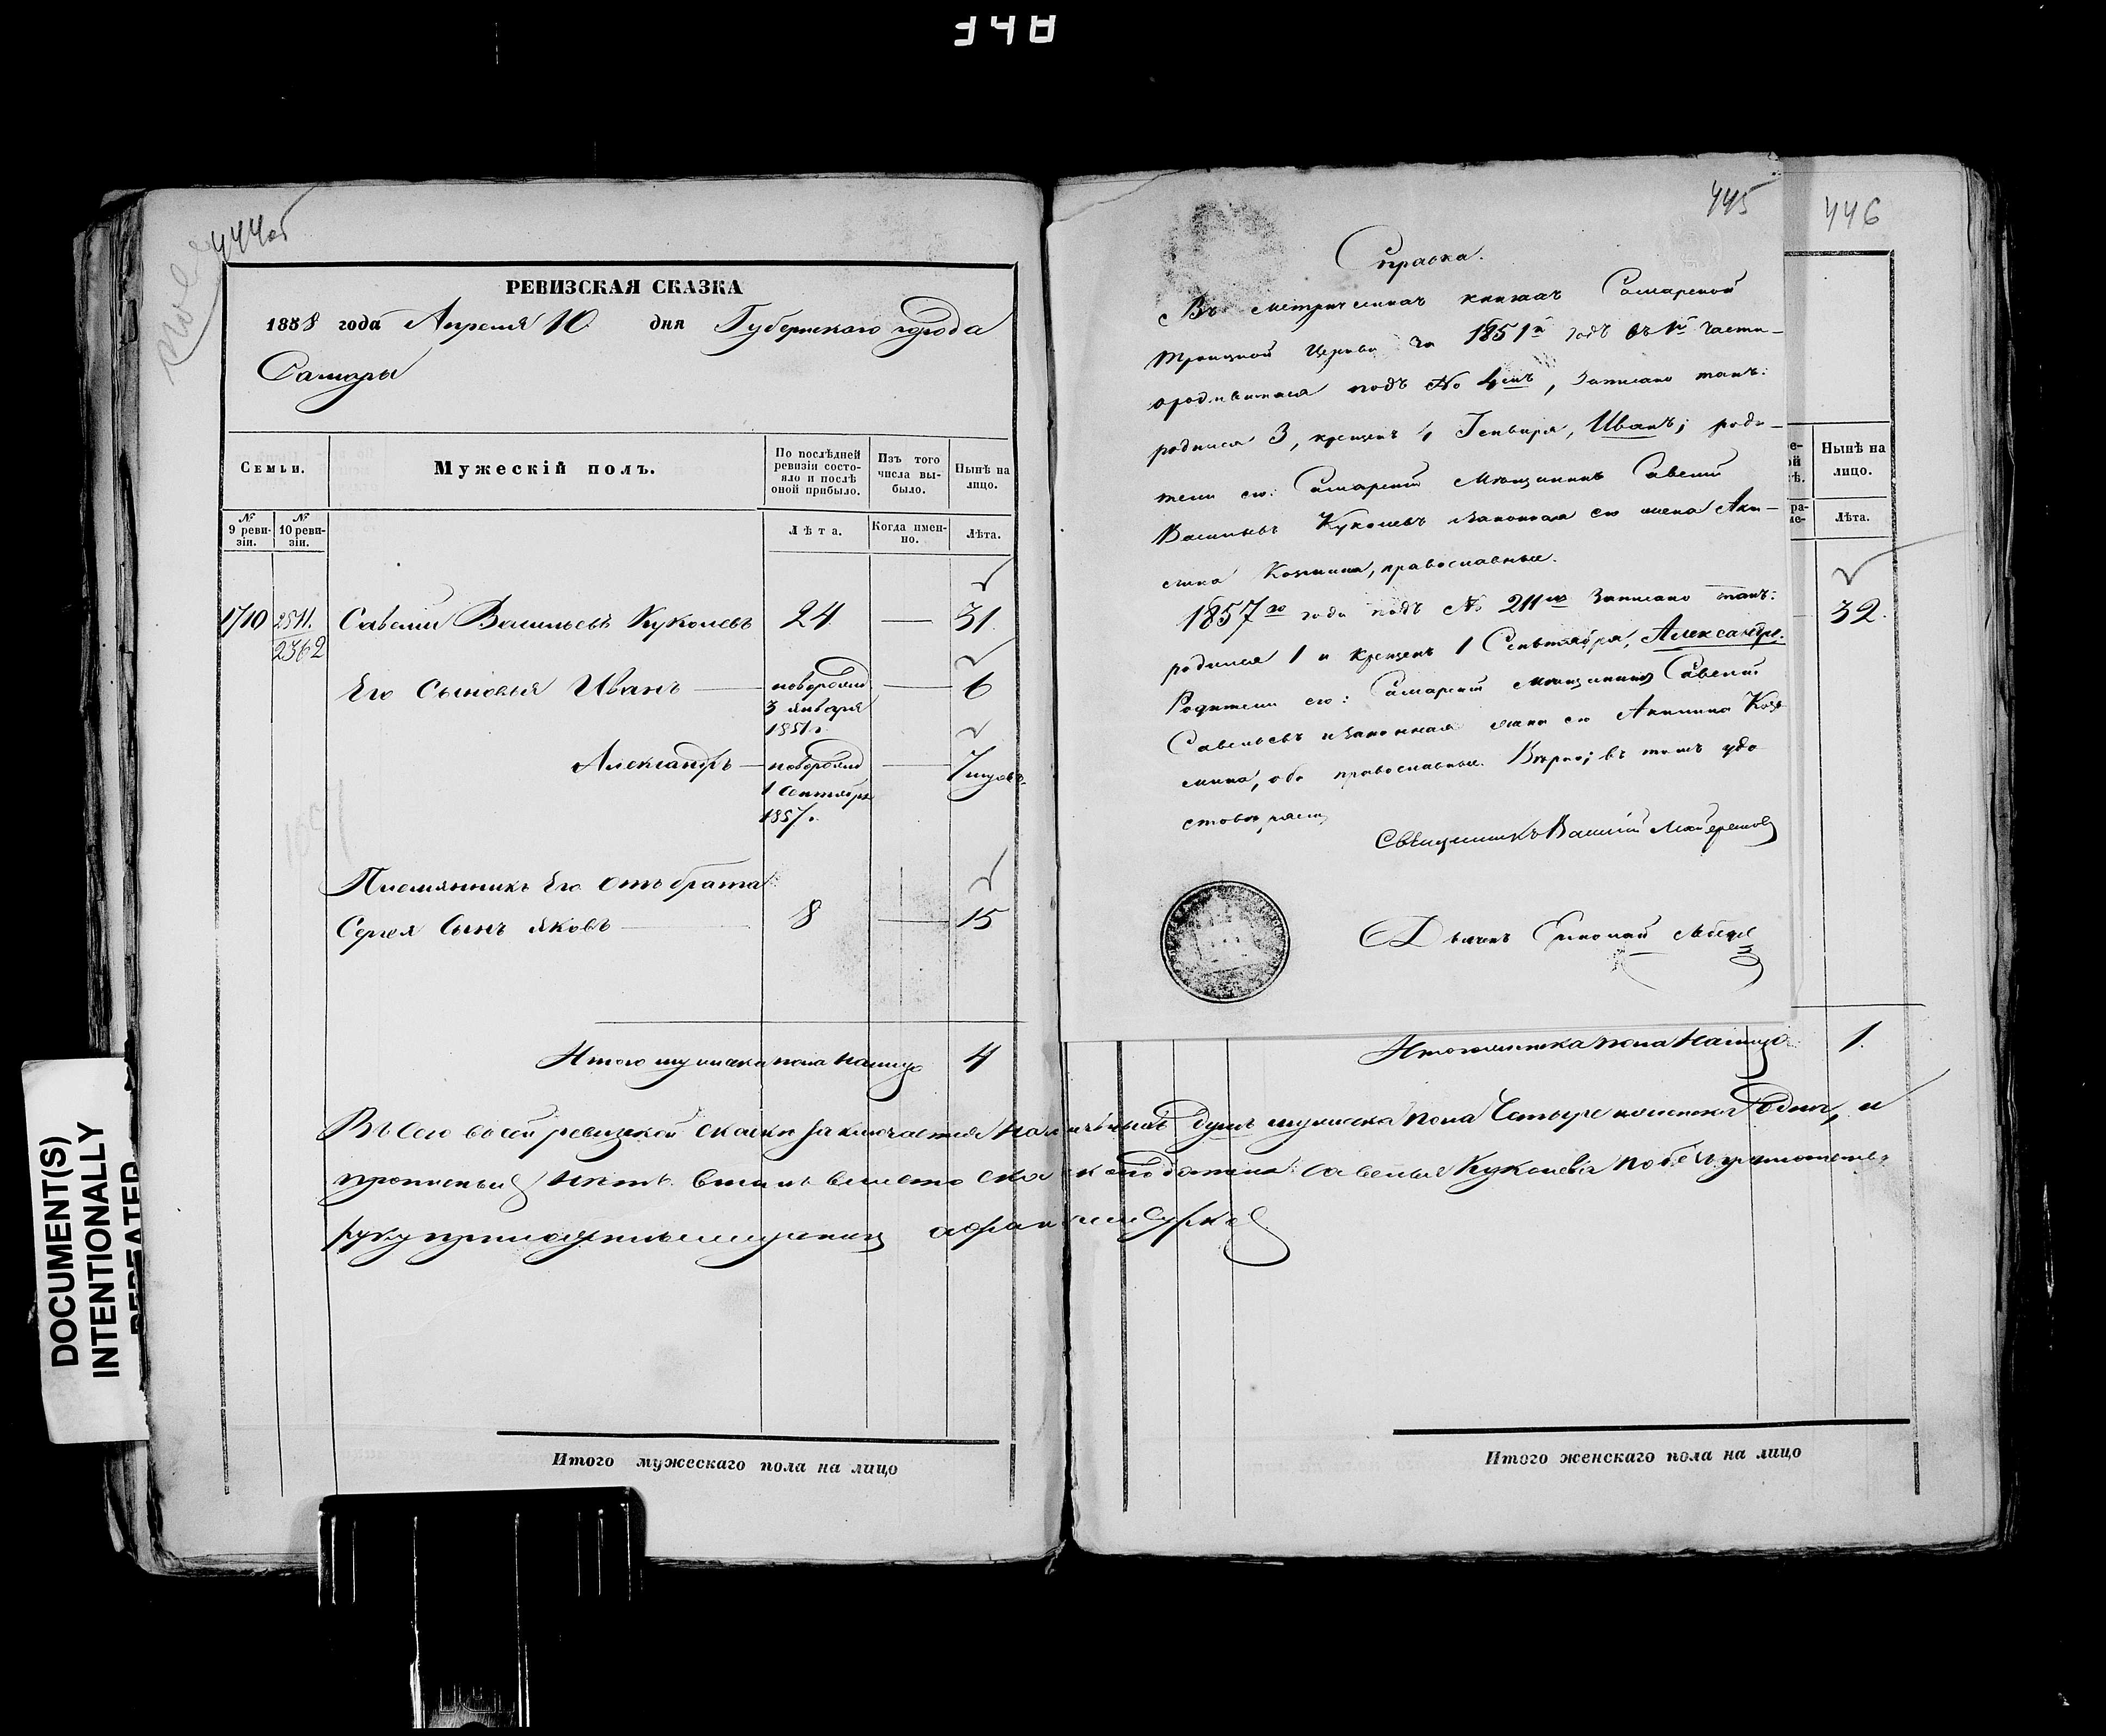 348
444об
РЕВИЗСКАЯ СКАЗКА
1858 года Апреля 10 дня Губернскаго города
Самары
Семьи.
Мужескій полъ.
По послѣдней ревизіи состояло и послѣ оной прибыло.
Изъ того числа выбыло.
Нынѣ на лицо.
№ 9 ревизіи.
№ 10 ревизіи.
Лѣта.
Когда именно.
Лѣта.
1710 2511. Савелий Васильевъ Куколевъ 24 — 31
2362
Его Сыновья Иванъ — новорожд — 6
3 января
1851.
Александръ — новорожд — 7 мцовъ
1 Сентября
1857.
Племянникъ Его отъ брата
Сергея Сынъ Яковъ 8 — 15
Итого мужеска пола налицо 4
DOCUMENT(S)
INTENTIONALLY
REPEATED
Итого мужескаго пола на лицо
445
Справка.
Въ метрическихъ книгахъ Самарской
Троицкой Церкви за 1851й годъ въ 1й части
о родившихся подъ № 4мъ, записано такъ:
родился 3, крещенъ 4 Генваря, Иванъ; роди-
тели его: Самарский Мѣщанинъ Савелий
Васильевъ Куколевъ и законная его жена Аку-
лина Козмина, православные.
1857го года подъ № 211мъ записано такъ:
родился 1 и крещенъ 1 Сентября, Александръ.
Родители его: Самарский мѣщанинъ Савелий
Савельевъ и законная жена его Акилина Козь-
мина, оба православные. Вѣрно; въ томъ удо-
стовѣряемъ
Священникъ Василий
Дьячекъ
446
Нынѣ на лицо.
Лѣта.
32.
Итого женска пола Налицо 1.
Въсего въ сей ревизкой скаски заключается наличныхъ душъ мужеска пола Четыре женска Одна, и
прописныхъ нѣтъ. въ томъ вместо скаскоподателя Савелья Куколева по безграмотству
руку приложилъ мещанинъ
Итого женскаго пола на лицо